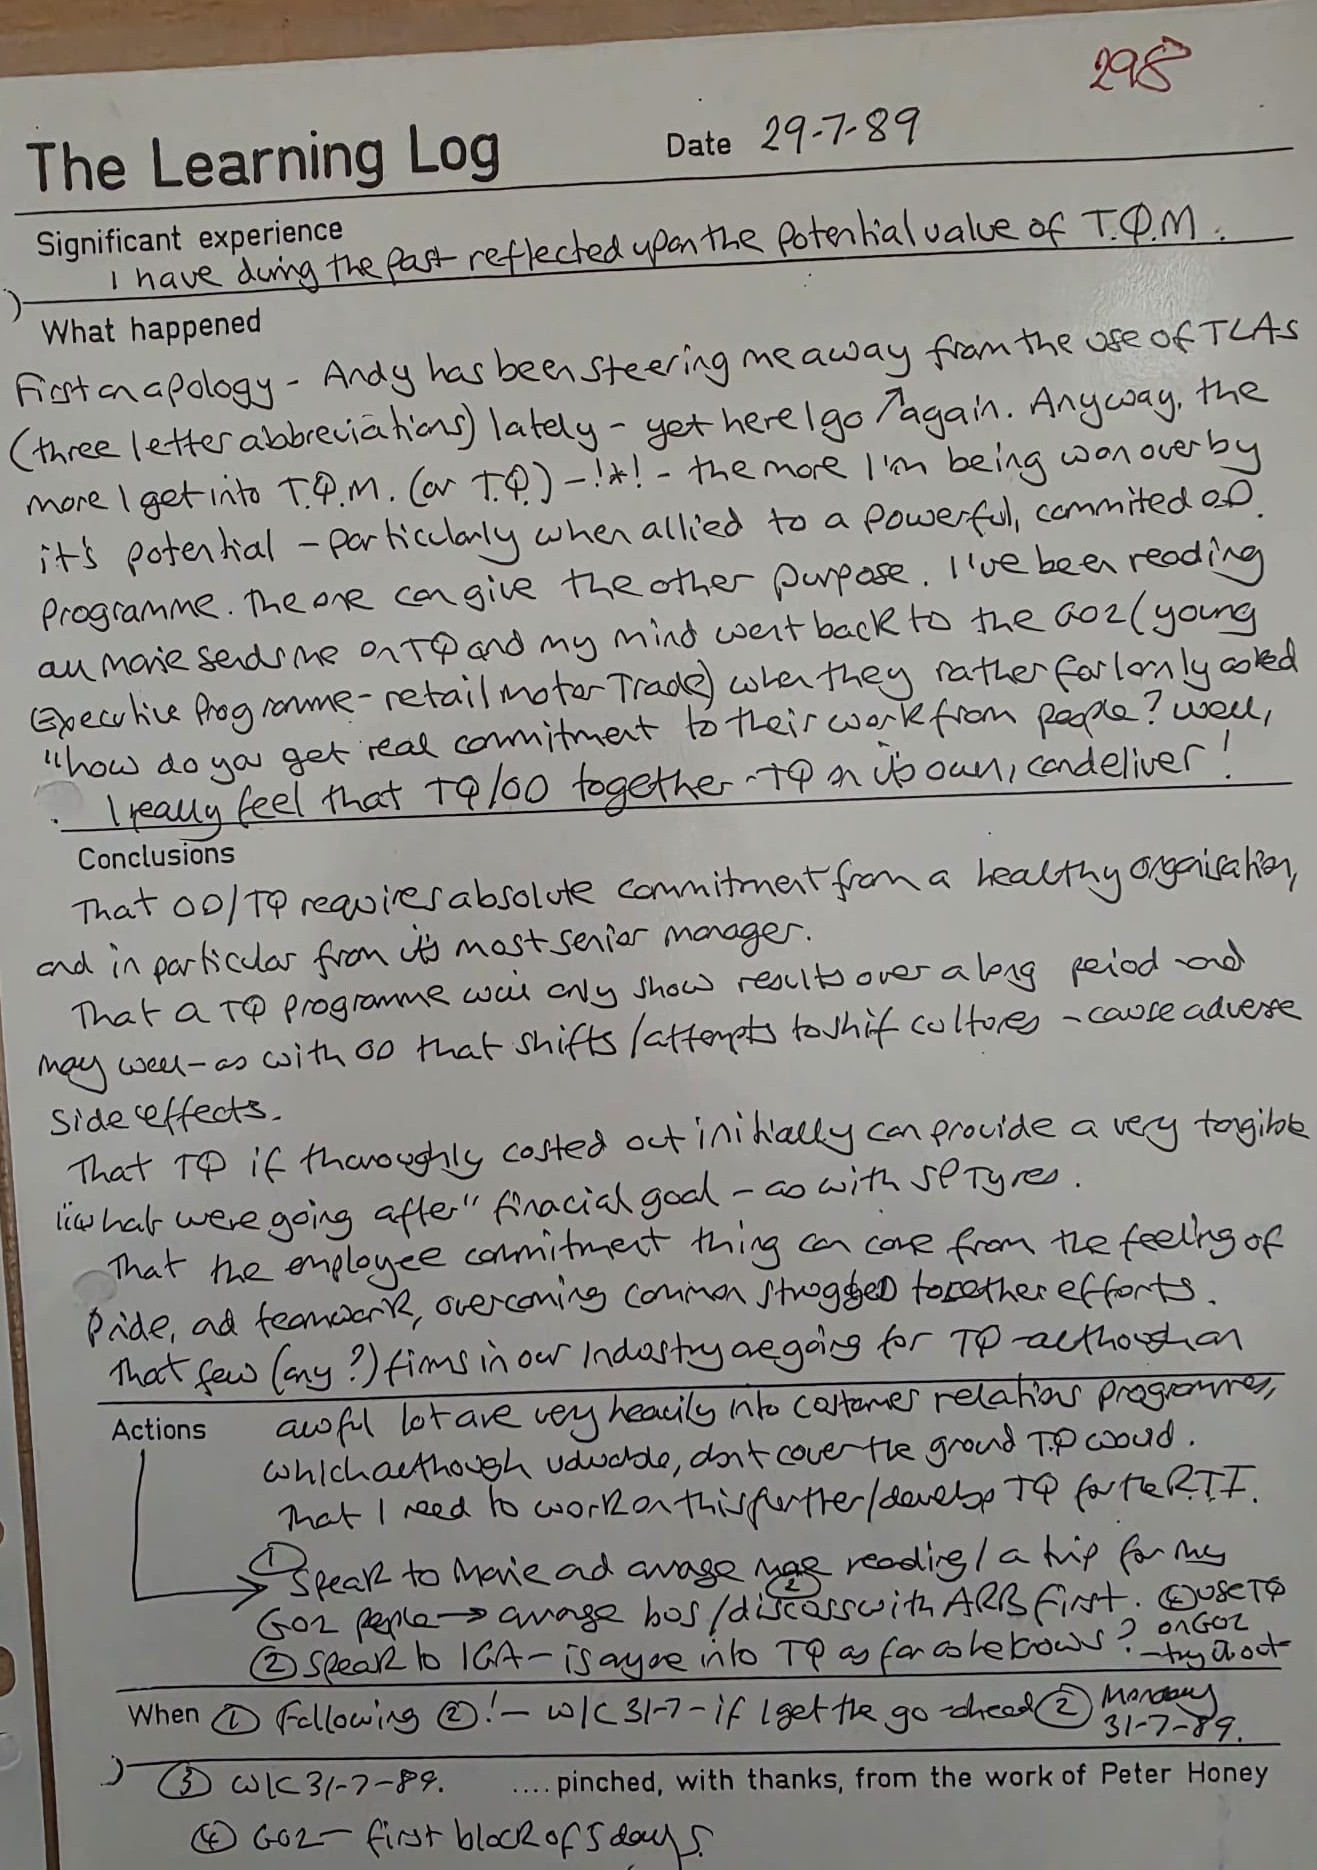 298
The Learning Log Date 29-7-89
Significant experience
I have during the past reflected upon the potential value of T.Q.M.
What happened
First an apology - Andy has been steering me away from the use of TLAs
(three letter abbreviations) lately - yet here I go again. Anyway, the
more I get into T.Q.M. (or T.Q.) - !*! - the more I'm being won over by
it's potential - particularly when allied to a powerful, commited O.D.
Programme. The one can give the other purpose. I've been reading
all Marie sends me on TQ and my mind went back to the GO2 (young
Executive Programme - retail motor Trade) when they rather forlornly asked
"how do you get real commitment to their work from people? Well,
I really feel that TQ/OD together - TQ on its own, can deliver!
Conclusions
That OD/TQ requires absolute commitment from a healthy organisation,
and in particular from it's most senior manager.
That a TQ programme will only show results over a long peiod and
may well - as with OD that shifts / attempts to shif cultures - cause adverse
side effects.
That TQ if thoroughly costed out initially can provide a very tangible
"what were going after" finacial goal - as with SP Tyres.
That the employee commitment thing can come from the feeling of
Pride, ad teamwork, overcoming common together efforts.
That few (any?) firms in our Industry are going for TQ - although an
Actions awful lot are very heavily into customer relations programmes,
which although valuable, dont cover the ground T.Q would.
That I need to work on this further/develop TQ for the R.T.I.
① Speak to Marie ad arrange reading / a trip for my
GO2 people → arrange /discuss with ARB first. ④ use TQ
on GO2
② Speak to IGA - is ayoe into TQ as far as he knows? - try it out
When ① Following ②! - W/C 31-7 - if I get the go-ahead ② Monday
31-7-89.
③ W/C 31-7-89. .... pinched, with thanks, from the work of Peter Honey
④ GO2 - first block of 5 days.